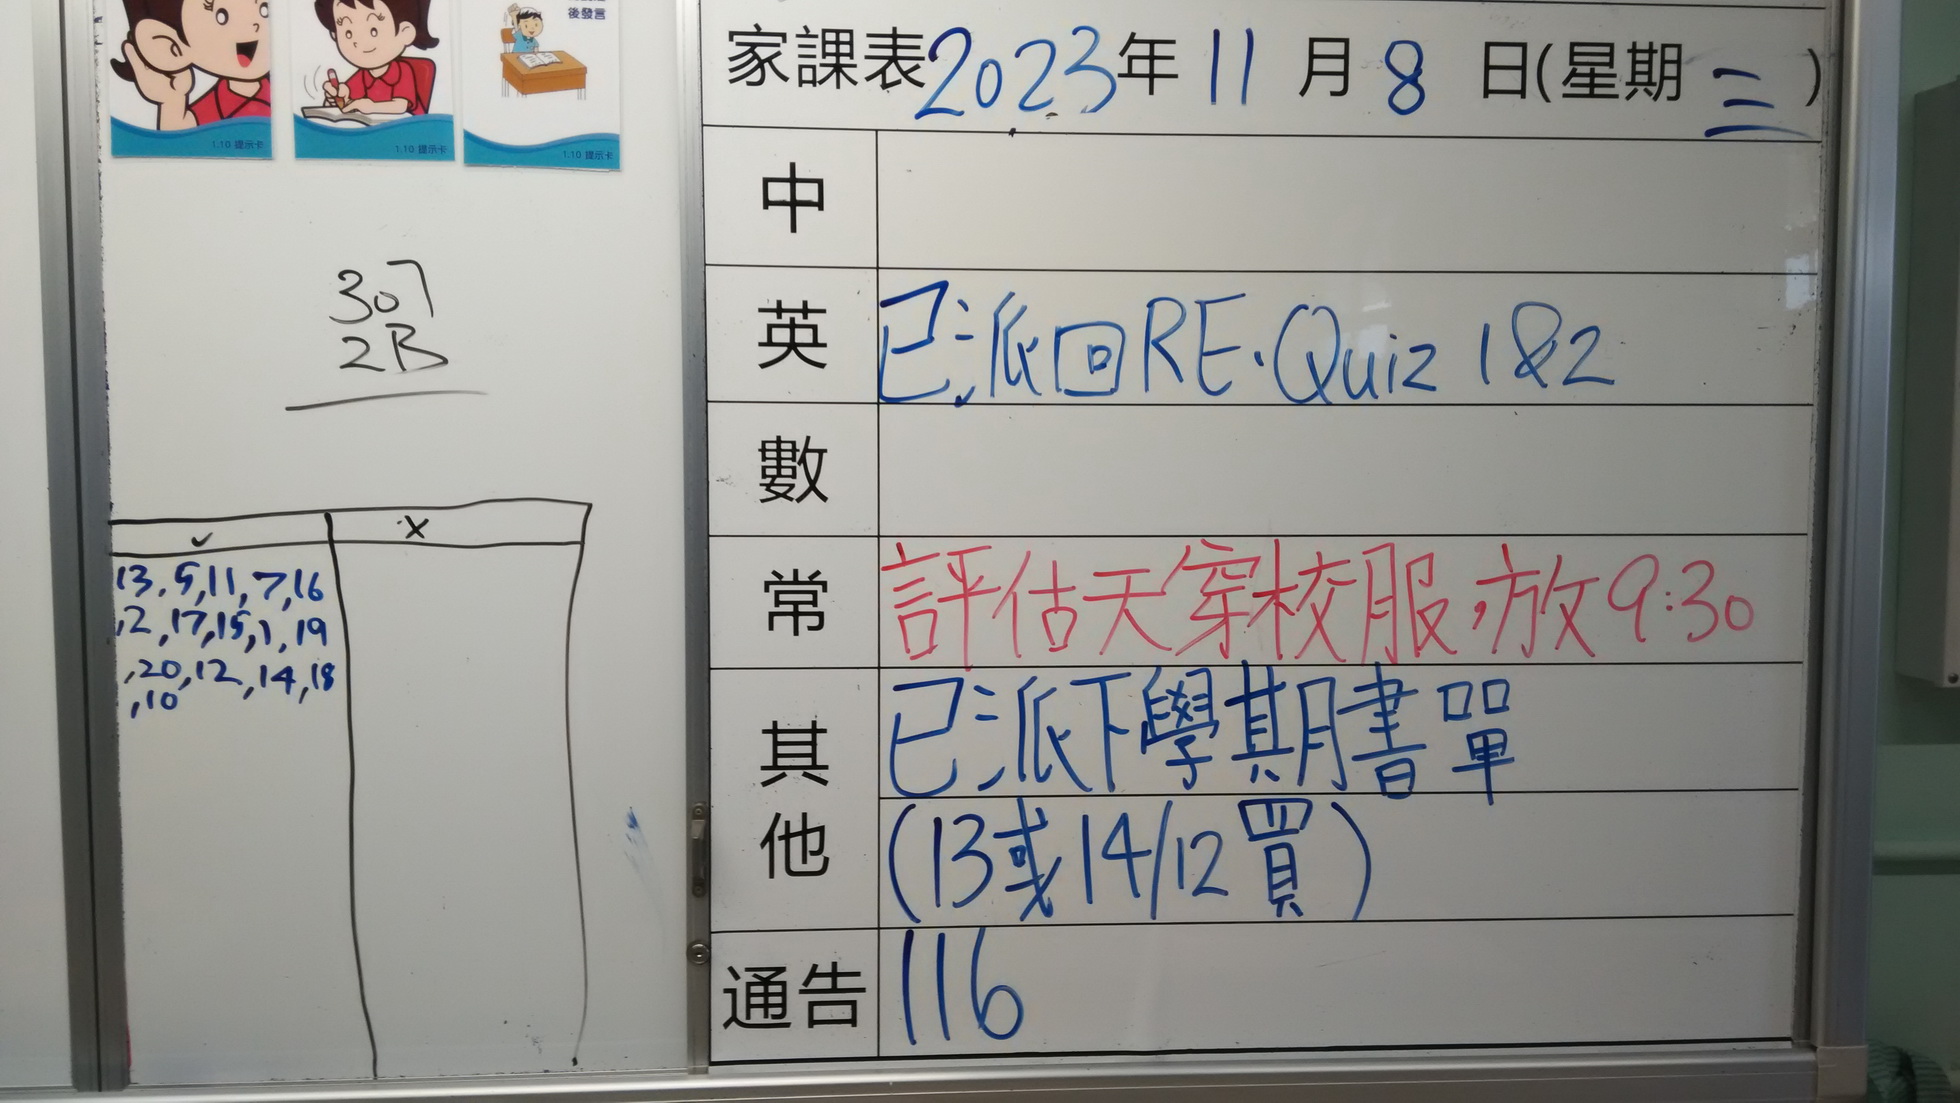 後發言
1.10 提示卡
1.10 提示卡
1.10 提示卡
307
2B
✓ X
13, 5, 11, 7, 16
, 2, 17, 15, 1, 19
, 20, 12, 14, 18
, 10
家課表2023年11月8日(星期三)
中
英 已派回RE.Quiz 1&2
數
常 評估天穿校服,放9:30
其他 已派下學期書單
(13或14/12買)
通告 116